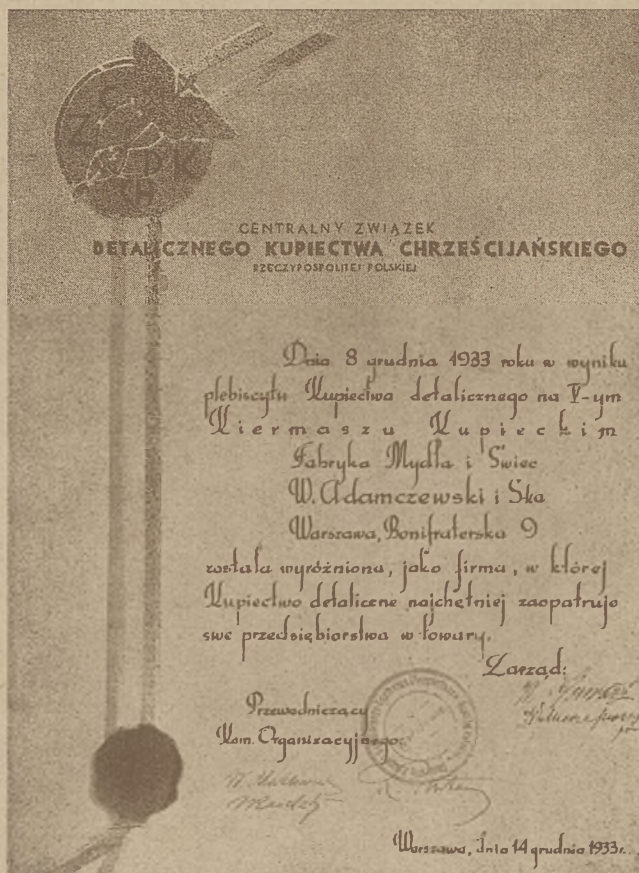 C Z
Z D K
CH
CENTRALNY ZWIĄZEK
DETALICZNEGO KUPIECTWA CHRZEŚCIJAŃSKIEGO
RZECZYPOSPOLITEJ POLSKIEJ
Dnia 8 grudnia 1933 roku w wyniku
plebiscytu Kupiectwa detalicznego na V-ym
Kiermaszu Kupieckim
Fabryka Mydła i Świec
W. Adamczewski i Ska
Warszawa, Bonifraterska 9
została wyróżniona, jako firma, w której
Kupiectwo detaliczne najchętniej zaopatruje
swe przedsiębiorstwa w towary.
Zarząd:
Przewodniczący
Kom. Organizacyjnego:
Warszawa, dnia 14 grudnia 1933 r.